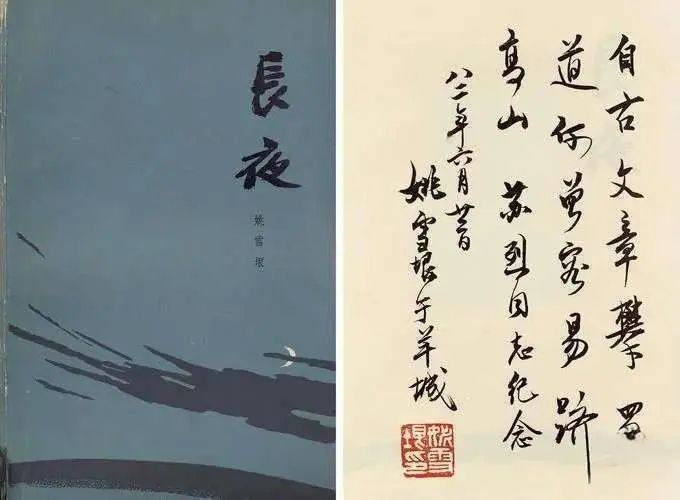 長夜
姚雪垠
自古文章攀蜀
道何曾容易跻
高山 苏烈同志纪念
八二年六月廿日
姚雪垠于羊城
姚雪垠印